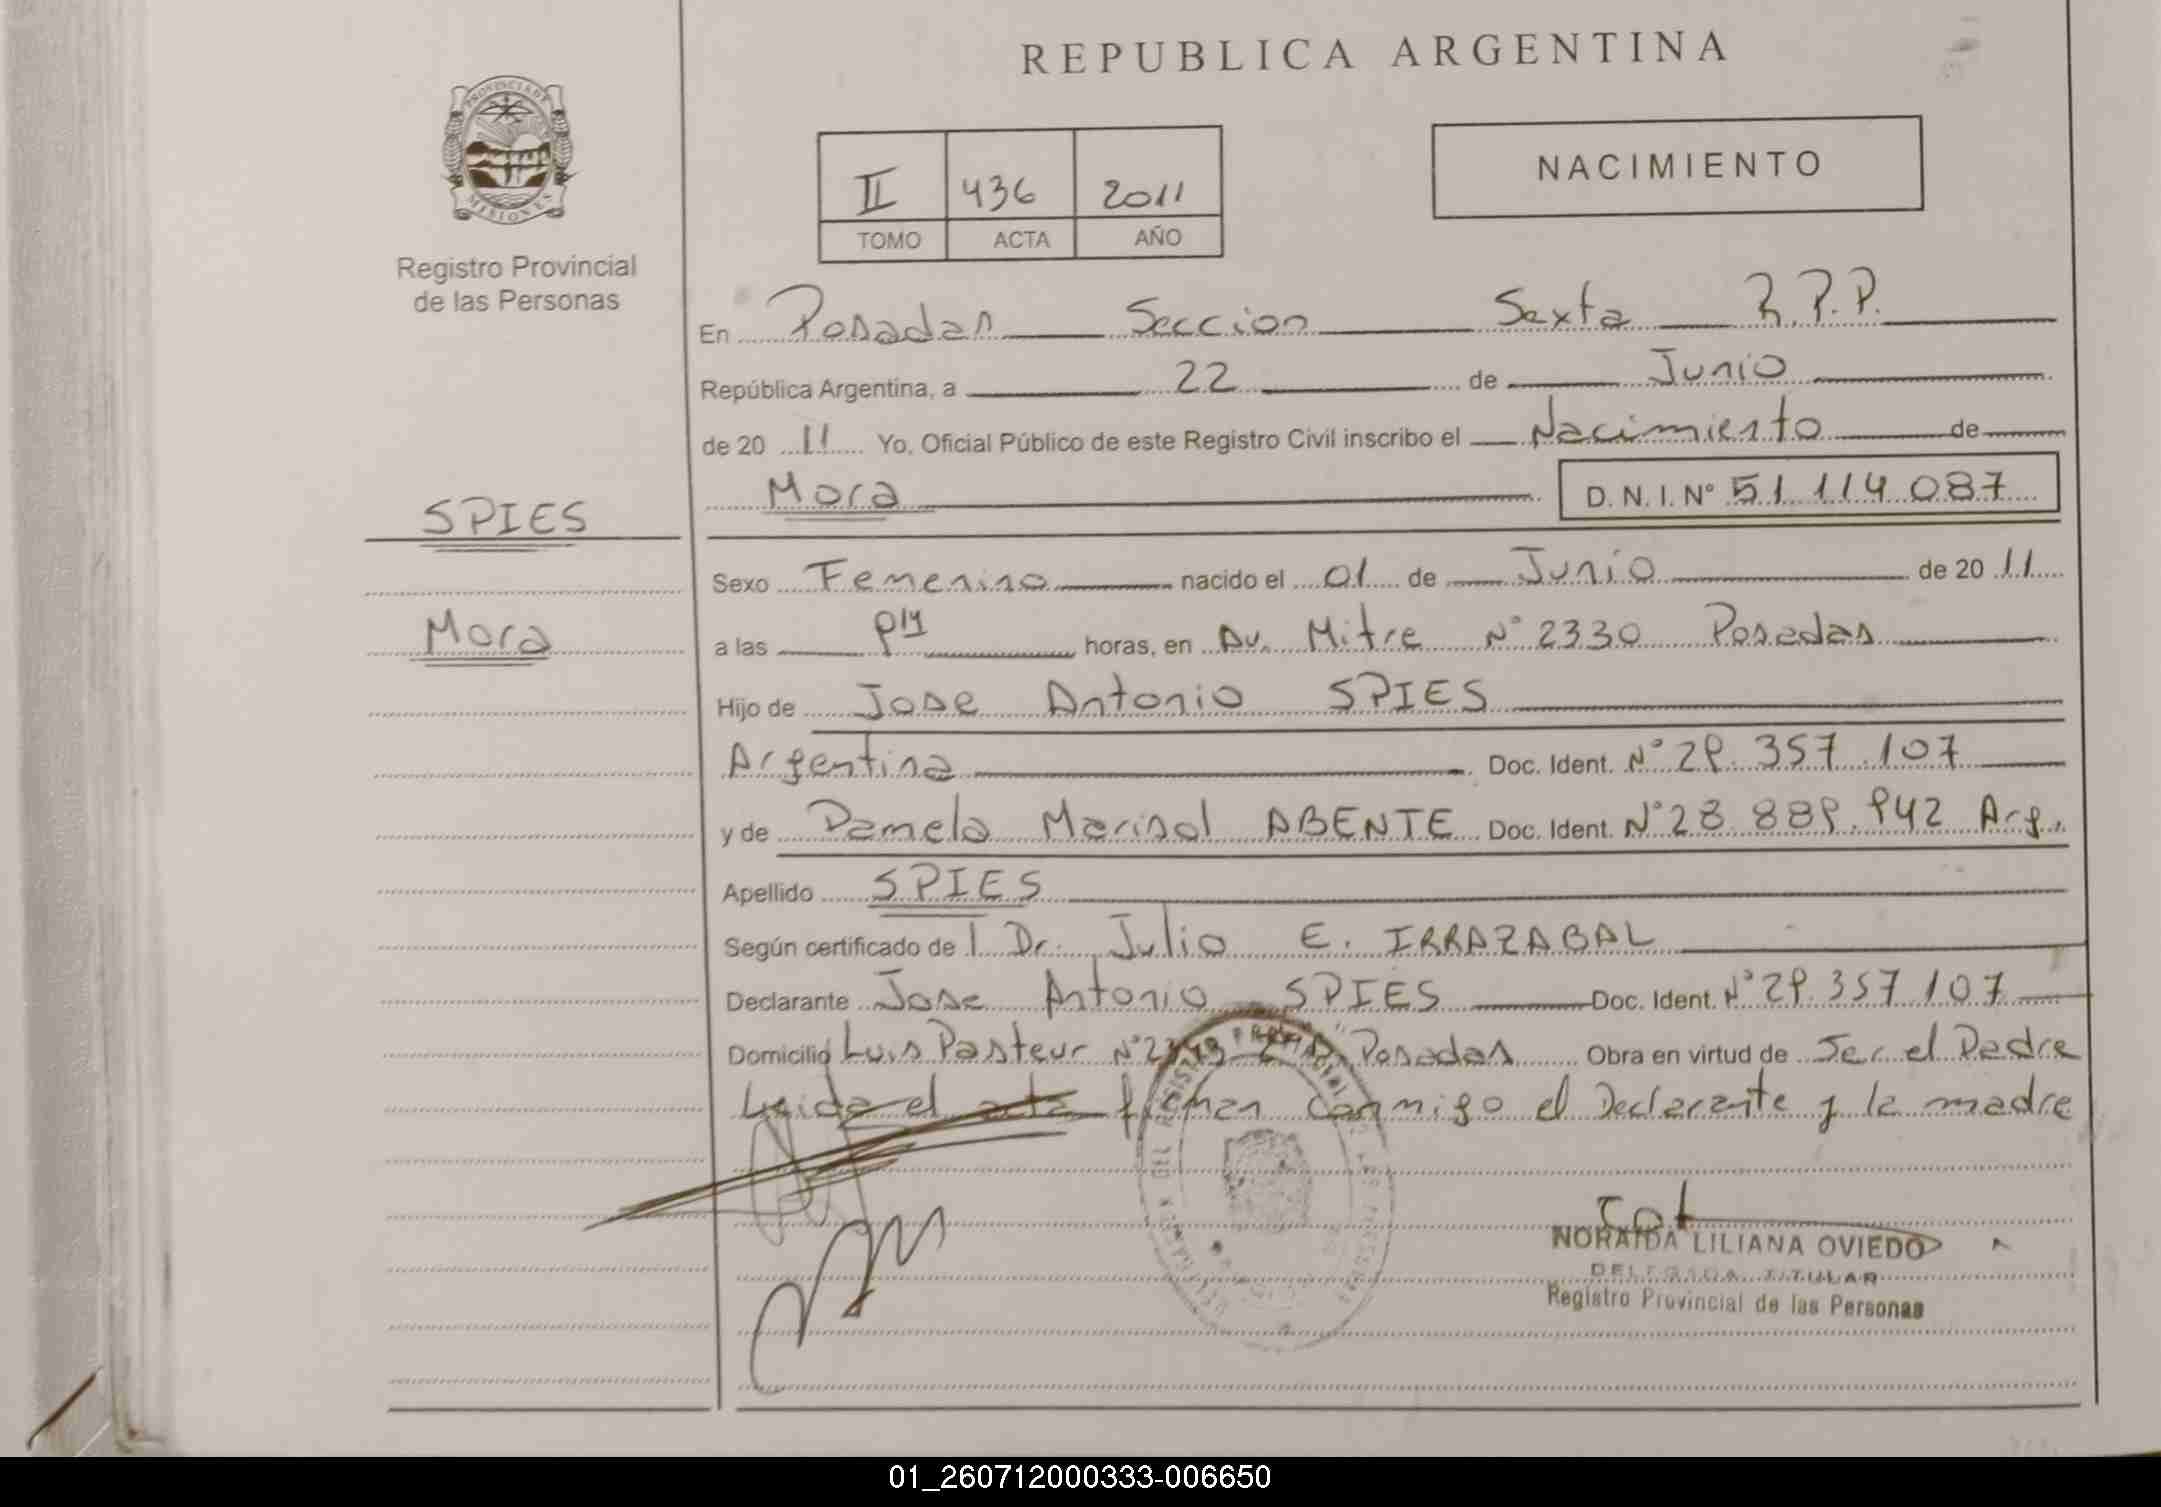 REPUBLICA ARGENTINA
PROVINCIA DE MISIONES
Registro Provincial
de las Personas
II 436 2011
TOMO ACTA AÑO
NACIMIENTO
En Posadas Seccion Sexta R.P.P.
República Argentina, a 22 de Junio
de 20 11 Yo, Oficial Público de este Registro Civil inscribo el Nacimiento de
Mora D.N.I. Nº 51 114 087
SPIES
Sexo Femenino nacido el 01 de Junio de 20 11
Mora
a las horas, en Av. Mitre Nº 2330 Posadas
Hijo de Jose Antonio SPIES
Argentina Doc. Ident. Nº 29.357.107
y de Pamela Marisol ABENTE Doc. Ident. Nº 28 889.942 Arg.
Apellido SPIES
Según certificado de l Dr. Julio E. IRRAZABAL
Declarante Jose Antonio SPIES Doc. Ident. Nº 29.357 107
Domicilio Luis Pasteur Posadas Obra en virtud de Ser el Padre
Leida el acta firman conmigo el Declarante y la madre
NORAIDA LILIANA OVIEDO
DELEGADA TITULAR
Registro Provincial de las Personas
01_260712000333-006650